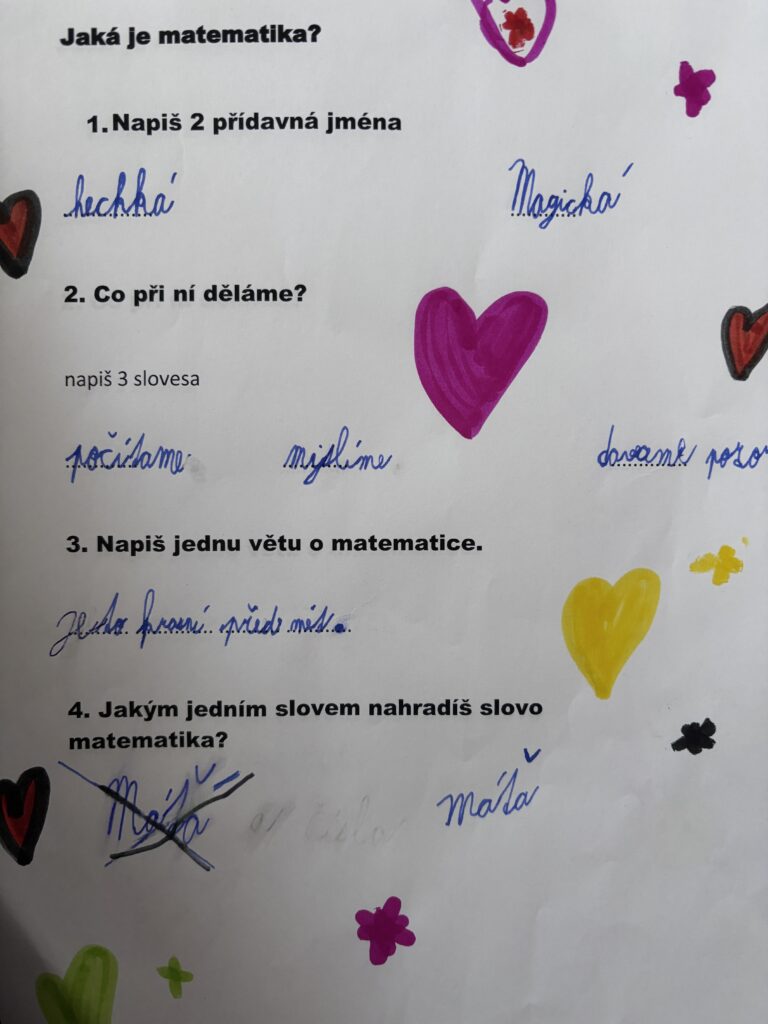 Jaká je matematika?
1. Napiš 2 přídavná jména
hechká Magická
2. Co při ní děláme?
napiš 3 slovesa
počítame myslíme davame pozo
3. Napiš jednu větu o matematice.
je to předmět.
4. Jakým jedním slovem nahradíš slovo
matematika?
Máťa čísla máťa